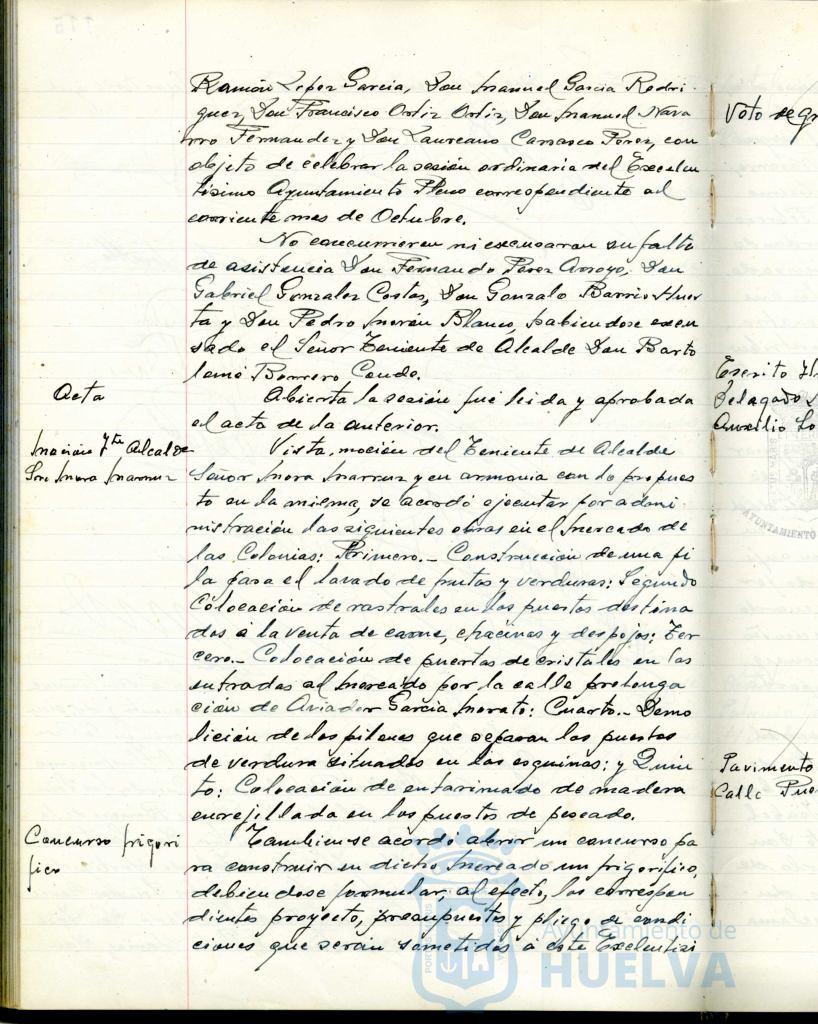 Ramón Lopez Garcia, Don Manuel Garcia Rodri
guez, Don Francisco Ortiz Ortiz, Don Manuel Nava
rro Fernandez y Don Laureano Carrasco Perez, con
objeto de celebrar la sesión ordinaria del Excelen
tisimo Ayuntamiento Pleno correspondiente al
corriente mes de Octubre.
No concurrieron ni excusaron su falta
de asistencia Don Fernando Perez Arroyo, Don
Gabriel Gonzalez Costas, Don Gonzalo Barrio Huer
ta y Don Pedro Morón Blanco, habiendose excu
sado el Señor Teniente de Alcalde Don Barto
lomé Borrero Conde.
Acta
Abierta la sesión fué leida y aprobada
el acta de la anterior.
Moción Tte. Alcalde
Sr. Mora Marruz
Vista, moción del Teniente de Alcalde
Señor Mora Marruz y en armonia con lo propues
to en la misma, se acordó ejecutar por admi
nistración las siguientes obras en el Mercado de
las Colonias: Primero.- Construcción de una pi
la para el lavado de frutas y verduras: Segundo
Colocación de rastrales en los puestos destina
dos a la venta de carne, chacinas y despojos: Ter
cero.- Colocación de puertas de cristales en las
entradas al Mercado por la calle prolonga
ción de Aviador Garcia Morato: Cuarto.- Demo
lición de los pilares que separan los puestos
de verdura situados en las esquinas: y Quin
to: Colocación de entarimado de madera
enrejillada en los puestos de pescado.
Concurso frigori
fico
Tambien se acordó abrir un concurso pa
ra construir en dicho Mercado un frigorifico,
debiendose formular, al efecto, los correspon
dientes proyecto, presupuestos y pliego de condi
ciones que serán sometidos a este Excelentisi
Voto de gr
Escrito
Delegado
Auxilio
AYUNTAMIENTO
Pavimento
Calle
Ayuntamiento de
HUELVA